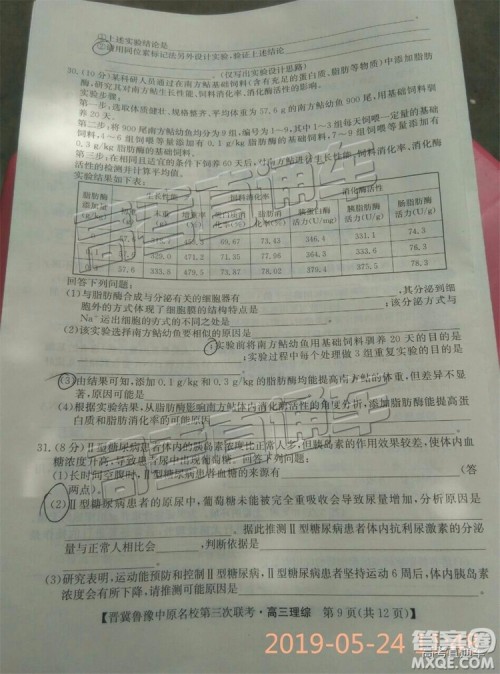 ①上述实验结论是
②请用同位素标记法另外设计实验,验证上述结论
。(仅写出实验设计思路)
30.(10分)某科研人员通过在南方鲇幼鱼基础饲料(含有充足的蛋白质、脂肪等物质)中添加脂肪
酶,研究其对南方鲇生长性能、饲料消化率、消化酶活性的影响。
实验步骤:
第一步,选取体质健壮、规格整齐、平均体重为57.6 g的南方鲇幼鱼900尾,用基础饲料驯
养20天。
第二步,将900尾南方鲇幼鱼均分为9组,编号为1~9,其中1~3组每天饲喂一定量的基础
饲料,4~6组饲喂等量添加有0.1 g/kg脂肪酶的基础饲料,7~9组饲喂等量添加有
0.3 g/kg脂肪酶的基础饲料。
第三步,在相同且适宜的条件下饲养60天后,对南方鲇进行生长性能、饲料消化率、消化酶
活性的检测并计算平均值。
实验结果如下表:
脂肪酶 生长性能 饲料消化率 消化酶活性
69.67 73.43 346.4 331.1 74.3
0.1 329.0 471.2 71.35 77.96 364.3 333.6 78.3
57.6 333.8 479.5 71.37 78.02 379.4 375.5 78.3
回答下列问题:
(1)与脂肪酶合成与分泌有关的细胞器有 ,其分泌到细
胞外的方式体现了细胞膜的结构特点是 ;该分泌方式与
Na⁺运出细胞的方式的不同之处是 。
(2)该实验选择南方鲇幼鱼的主要相似的原因是
。实验前将南方鲇幼鱼用基础饲料驯养20天的目的是
;实验过程中每个处理做3组重复实验的目的是
。
(3)由结果可知,添加0.1 g/kg和0.3 g/kg的脂肪酶均能提高南方鲇的体重,但差异不显
著,原因可能是 。
(4)根据实验结果,从脂肪酶影响南方鲇体内消化酶活性的角度分析,添加脂肪酶能提高蛋
白质和脂肪消化率的可能原因 。
31.(8分)Ⅱ型糖尿病患者体内的胰岛素浓度比正常人多,但胰岛素的作用效果较差,使体内血
糖浓度升高,导致糖尿中出现葡萄糖。回答下列问题:
(1)长时间空腹时,Ⅱ型糖尿病人血糖的来源有 (答
两点)。
(2)Ⅱ型糖尿病患者的原尿中,葡萄糖未能被完全重吸收会导致尿量增加,分析原因是
。据此推测Ⅱ型糖尿病患者体内抗利尿激素的分泌
量与正常人相比会 ,判断依据是
。
(3)研究表明,运动能预防和控制Ⅱ型糖尿病,Ⅱ型糖尿病患者坚持运动6周后,体内胰岛
【晋冀鲁豫中原名校第三次联考·高三理综 第9页(共12页)】
高考直通车
高考直通车
高考直通车
2019-05-24
答案圈
MXQE.COM